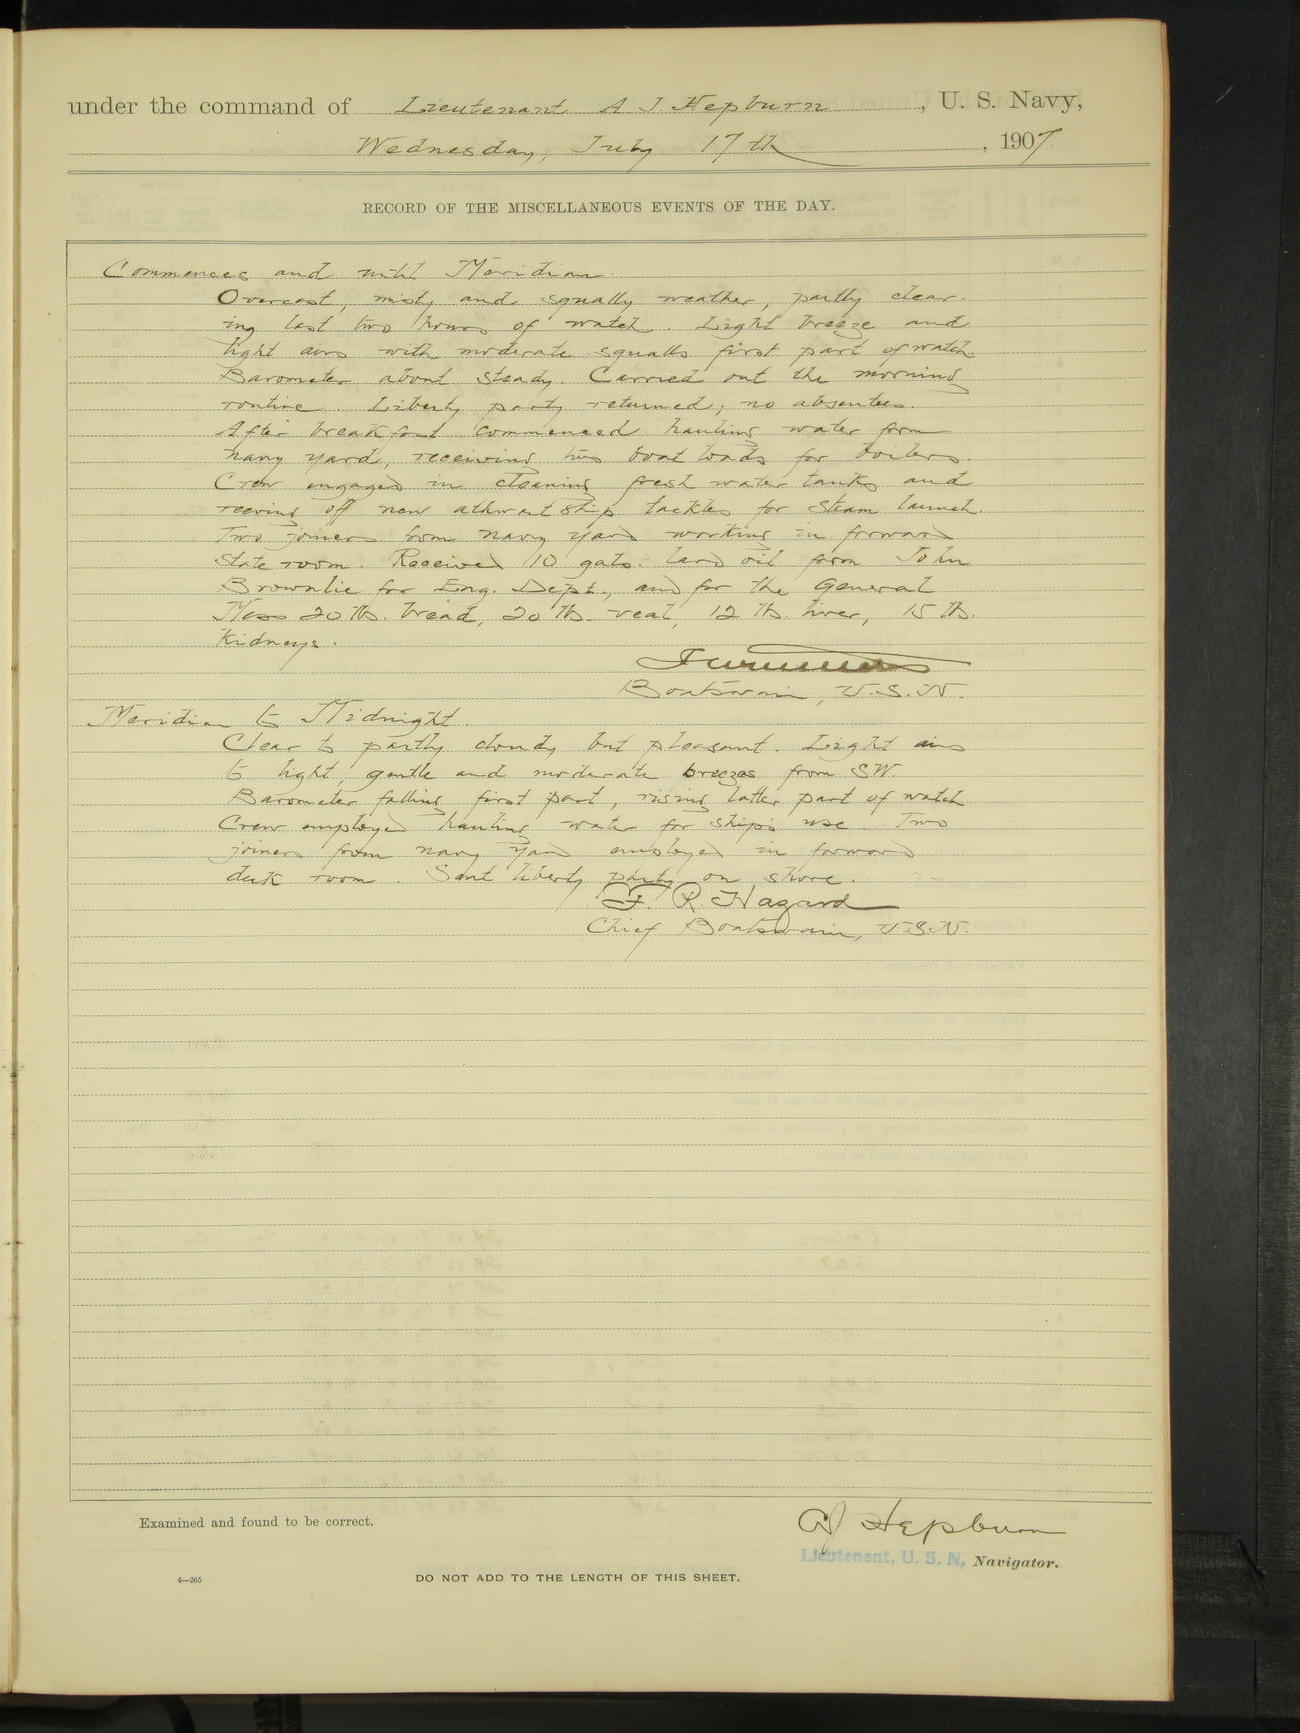 under the command of Lieutenant A J Hepburn, U. S. Navy,
Wednesday, July 17th, 1907
RECORD OF THE MISCELLANEOUS EVENTS OF THE DAY.
Commences and until Meridian.
Overcast, misty and squally weather, partly clear-
ing last two hours of watch. Light breeze and
light airs with moderate squalls first part of watch.
Barometer about steady. Carried out the morning
routine. Liberty party returned; no absentees.
After breakfast commenced hauling water from
navy yard, receiving two boat loads for boilers.
Crew engaged in cleaning fresh water tanks and
reeving off new athwartship tackles for steam launch.
Two joiners from navy yard working in forward
state room. Received 10 gals. lard oil from John
Brownlie for Eng. Dept., and for the General
Mess 20 lb. bread, 20 lb. veal, 12 lb. liver, 15 lb.
kidneys.
Boatswain, U.S.N.
Meridian to Midnight.
Clear to partly cloudy but pleasant. Light airs
to light, gentle and moderate breezes from SW.
Barometer falling first part, rising latter part of watch
Crew employed hauling water for ship's use. Two
joiners from navy yard employed in forward
deck room. Sent liberty party on shore.
F. R. Hazard
Chief Boatswain, U.S.N.
Examined and found to be correct.
AJ Hepburn
Lieutenant, U. S. N, Navigator.
4—265
DO NOT ADD TO THE LENGTH OF THIS SHEET.